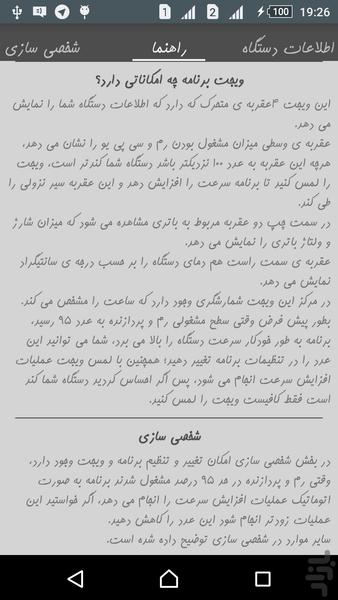 100 19:26
اطلاعات دستگاه راهنما شخصی سازی
ویجت برنامه چه امکاناتی دارد؟
این ویجت ۴عقربه ی متحرک که دارد که اطلاعات دستگاه شما را نمایش
می دهد.
عقربه ی وسطی میزان مشغول بودن رم و سی پی یو را نشان می دهد،
هرچه این عقربه به عدد ۱۰۰ نزدیکتر باشد دستگاه شما کندتر است، ویجت
را لمس کنید تا برنامه سرعت را افزایش دهد و این عقربه سیر نزولی را
طی کند.
در سمت چپ دو عقربه مربوط به باتری مشاهده می شود که میزان شارژ
و ولتاژ باتری را نمایش می دهد.
عقربه ی سمت راست هم دمای دستگاه را بر حسب درجه ی سانتیگراد
نمایش می دهد.
در مرکز این ویجت شمارشگری وجود دارد که ساعت را مشخص می کند.
بطور پیش فرض وقتی سطح مشغولی رم و پردازنده به عدد ۹۵ رسید،
برنامه به طور خودکار سرعت دستگاه را بالا می برد، شما می توانید این
عدد را در تنظیمات برنامه تغییر دهید؛ همچنین با لمس ویجت عملیات
افزایش سرعت انجام می شود، پس اگر احساس کردید دستگاه شما کند
است فقط کافیست ویجت را لمس کنید.
شخصی سازی
در بخش شخصی سازی امکان تغییر و تنظیم برنامه و ویجت وجود دارد،
وقتی رم و پردازنده در حد ۹۵ درصد مشغول شدند برنامه به صورت
اتوماتیک عملیات افزایش سرعت را انجام می دهد، اگر خواستید این
عملیات زودتر انجام شود این عدد را کاهش دهید.
سایر موارد در شخصی سازی توضیح داده شده است.
بازار